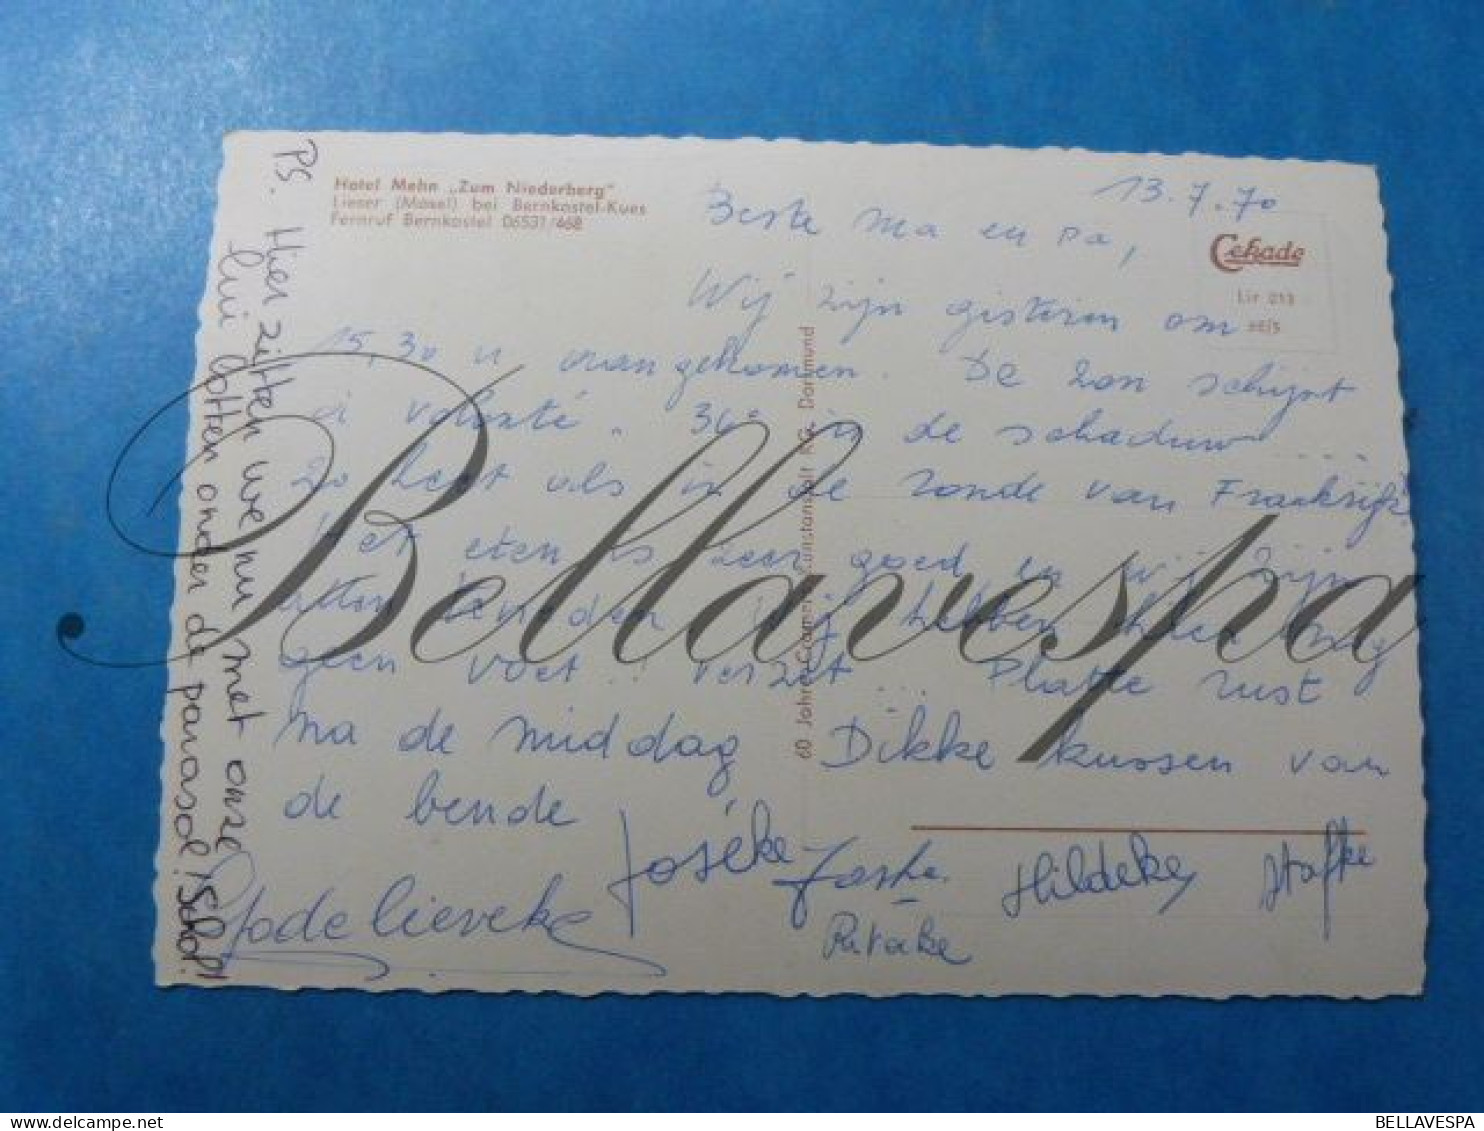 Hotel Mehn „Zum Niederberg"
Lieser (Mosel) bei Bernkastel-Kues
Fernruf Bernkastel 06531/468
13.7.70
Cekade
Lir 213
Beste ma en pa,
Wij zijn gisteren om
15,30 u aangekomen. De zon schijnt
à volonté. 36° in de schaduw ....
zo heet als in de ronde van Frankrijk.
Het eten is zeer goed en wij zijn
tevreden Wij hebben hier nog
geen voet !! verzet ... Platte rust
na de middag Dikke kussen van
de bende
Joséke
Hildeke
Stafke
Godelieveke
Ritake
P.S. Hier zitten we nu met onze
luie botten onder de parasol! Schol!
60 Jahre Cramers Kunstanstalt KG. Dortmund
Bellavespa
BELLAVESPA